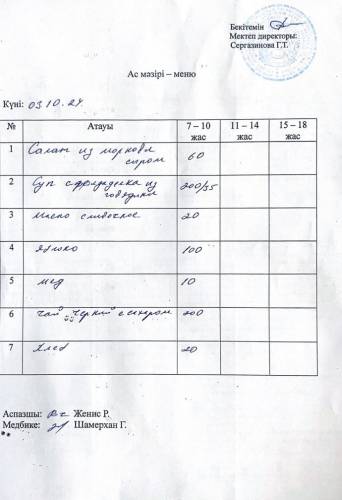 Бекітемін
Мектеп директоры:
Сергазинова Г.Т.
Ас мәзірі – меню
Күні: 03.10.24.
№ Атауы 7 – 10 жас 11 – 14 жас 15 – 18 жас
1 Салат из моркови сыром 60
2 Суп с фрикаделька из говядины 200/35
3 Масло сливочное 20
4 Яблоко 100
5 мед 10
6 чай черный с сахаром 200
7 Хлеб 20
Аспазшы: Женис Р.
Медбике: Шамерхан Г.